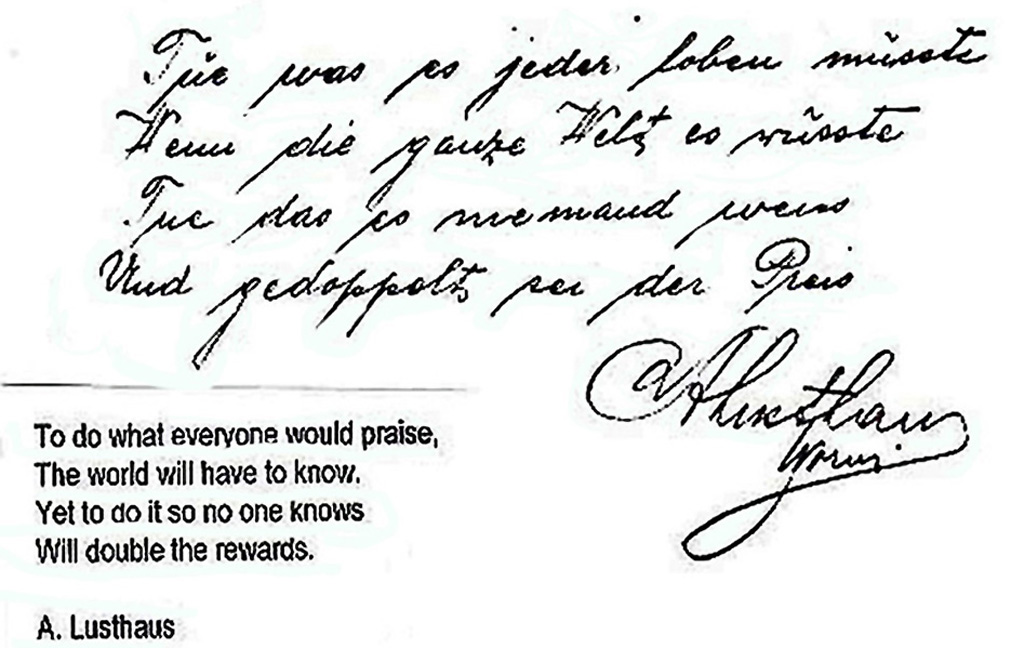 Tue was es jeder loben müsste
Wenn die ganze Welt es wüsste
Tue das es niemand weiss
Und gedoppelt sei der Preis
To do what everyone would praise,
The world will have to know.
Yet to do it so no one knows
Will double the rewards.
A. Lusthaus